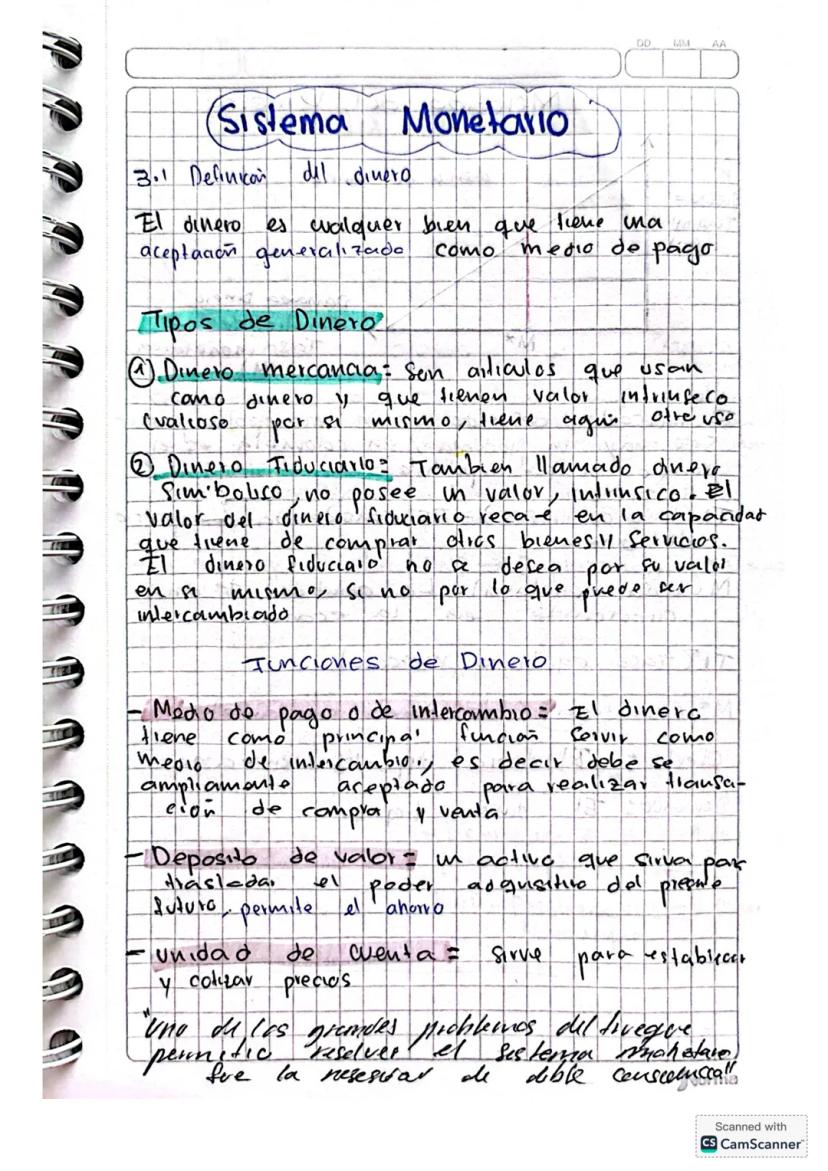 DD MM AA
Sistema Monetario
3.1 Definicón del dinero
El dinero es cualquer bien que tiene una
aceptación generalizado como medio de pago
Tipos de Dinero
① Dinero mercancia: Son articulos que usan
como dinero y que tienen valor intrinseco
(valioso por si mismo, tiene algun otro uso
② Dinero Fiduciario: Tambien llamado dinero
Simbolico, no posee un valor, intrinsico. El
valor del dinero fiduciario recae en la capacidad
que tiene de comprar otros bienes y servicios.
El dinero fiduciario no se desea por su valor
en si mismo, si no por lo que puede ser
intercambiado
Funciones de Dinero
- Medio de pago o de intercambio: El dinero
tiene como principal función servir como
medio de intercambio, es decir debe se
ampliamente aceptado para realizar transa-
ción de compra y venta
- Deposito de valor: un activo que sirva para
trasladar el poder adquisitivo del presente
futuro, permite el ahorro
- unidad de cuenta: sirve para establecer
y cotizar precios
"Uno de los grandes problemas del trueque
permitio resolver el sistema monetario
fue la necesidad de doble
Norma
Scanned with
CS CamScanner